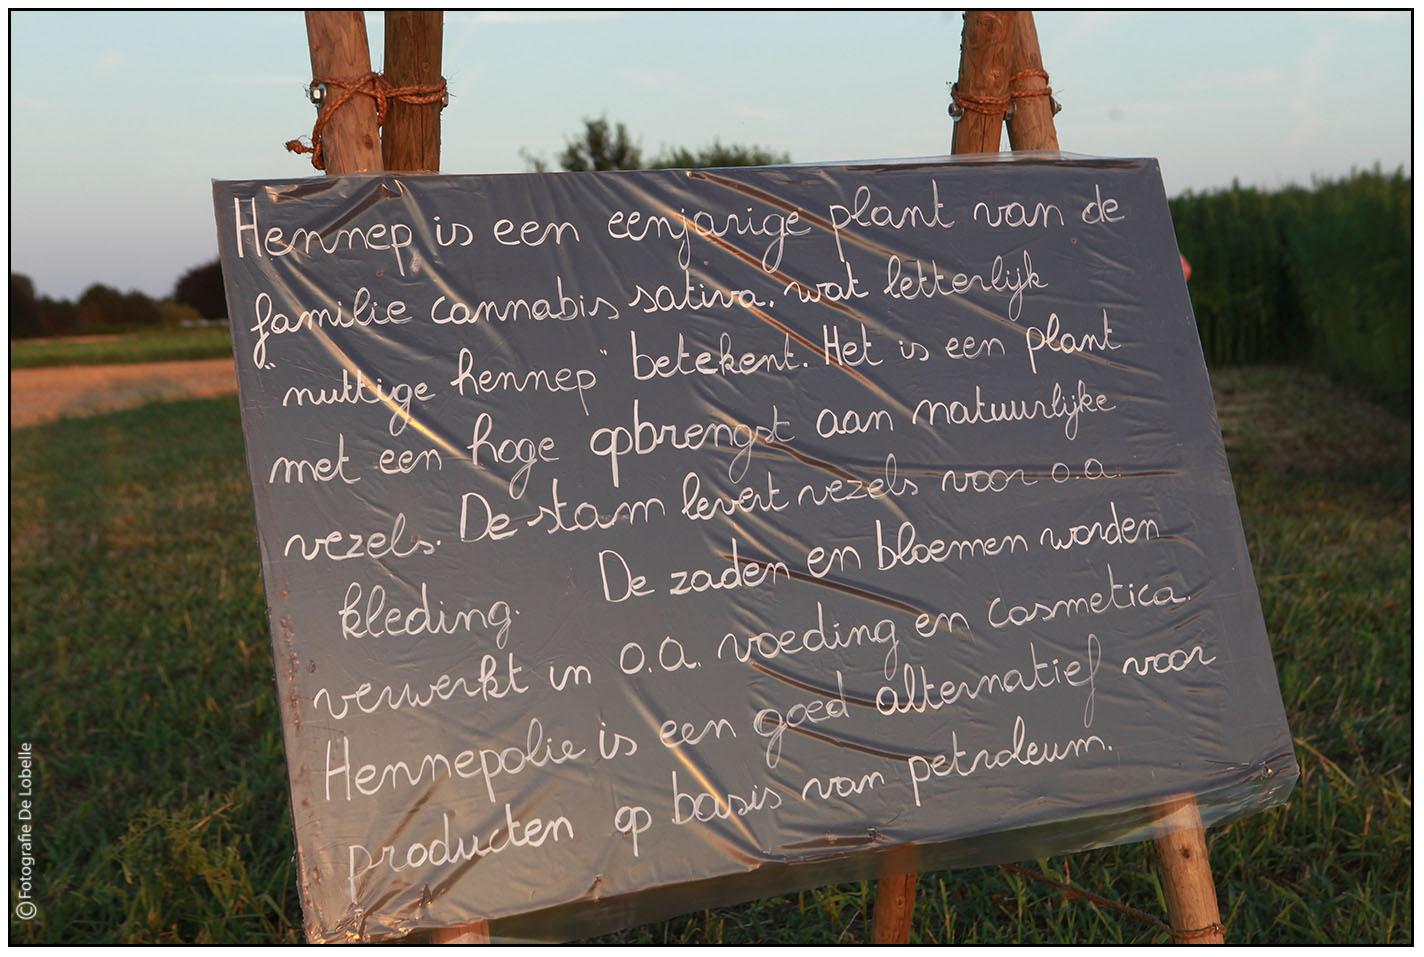 Hennep is een eenjarige plant van de
familie cannabis sativa. wat letterlijk
"nuttige hennep" betekent. Het is een plant
met een hoge opbrengst aan natuurlijke
vezels. De stam levert vezels voor o.a.
kleding. De zaden en bloemen worden
verwerkt in o.a. voeding en cosmetica.
Hennepolie is een goed alternatief voor
producten op basis van petroleum.
©Fotografie De Lobelle